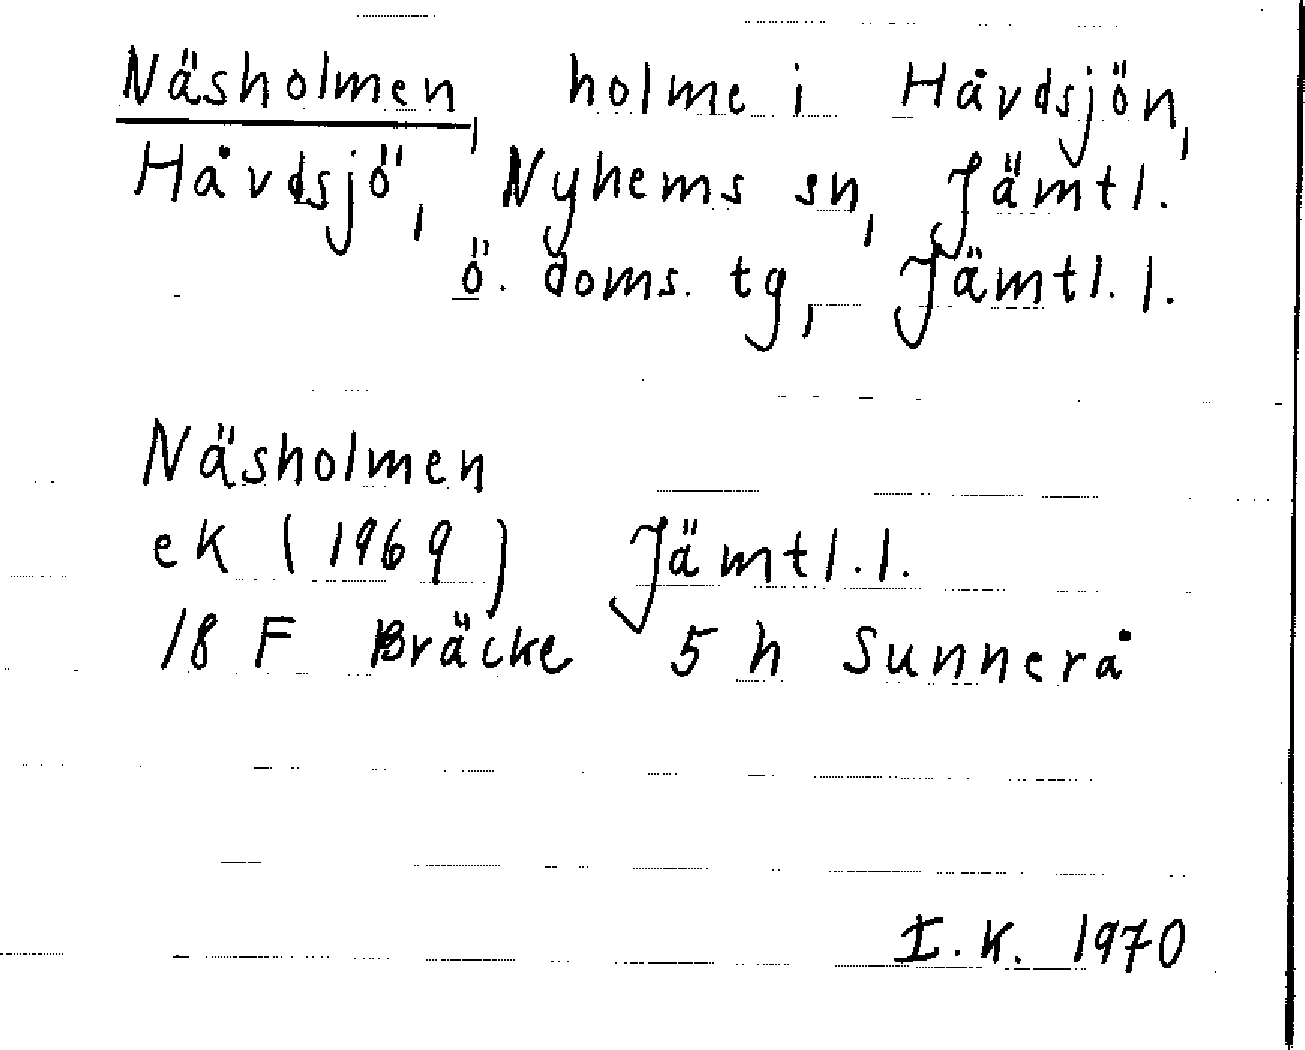 Näsholmen, holme i Håvdsjön,
Håvdsjö, Nyhems sn, Jämtl.
ö. doms. tg, Jämtl. l.
Näsholmen
ek (1969) Jämtl. l.
18 F Bräcke 5 h Sunnerå
I. K. 1970